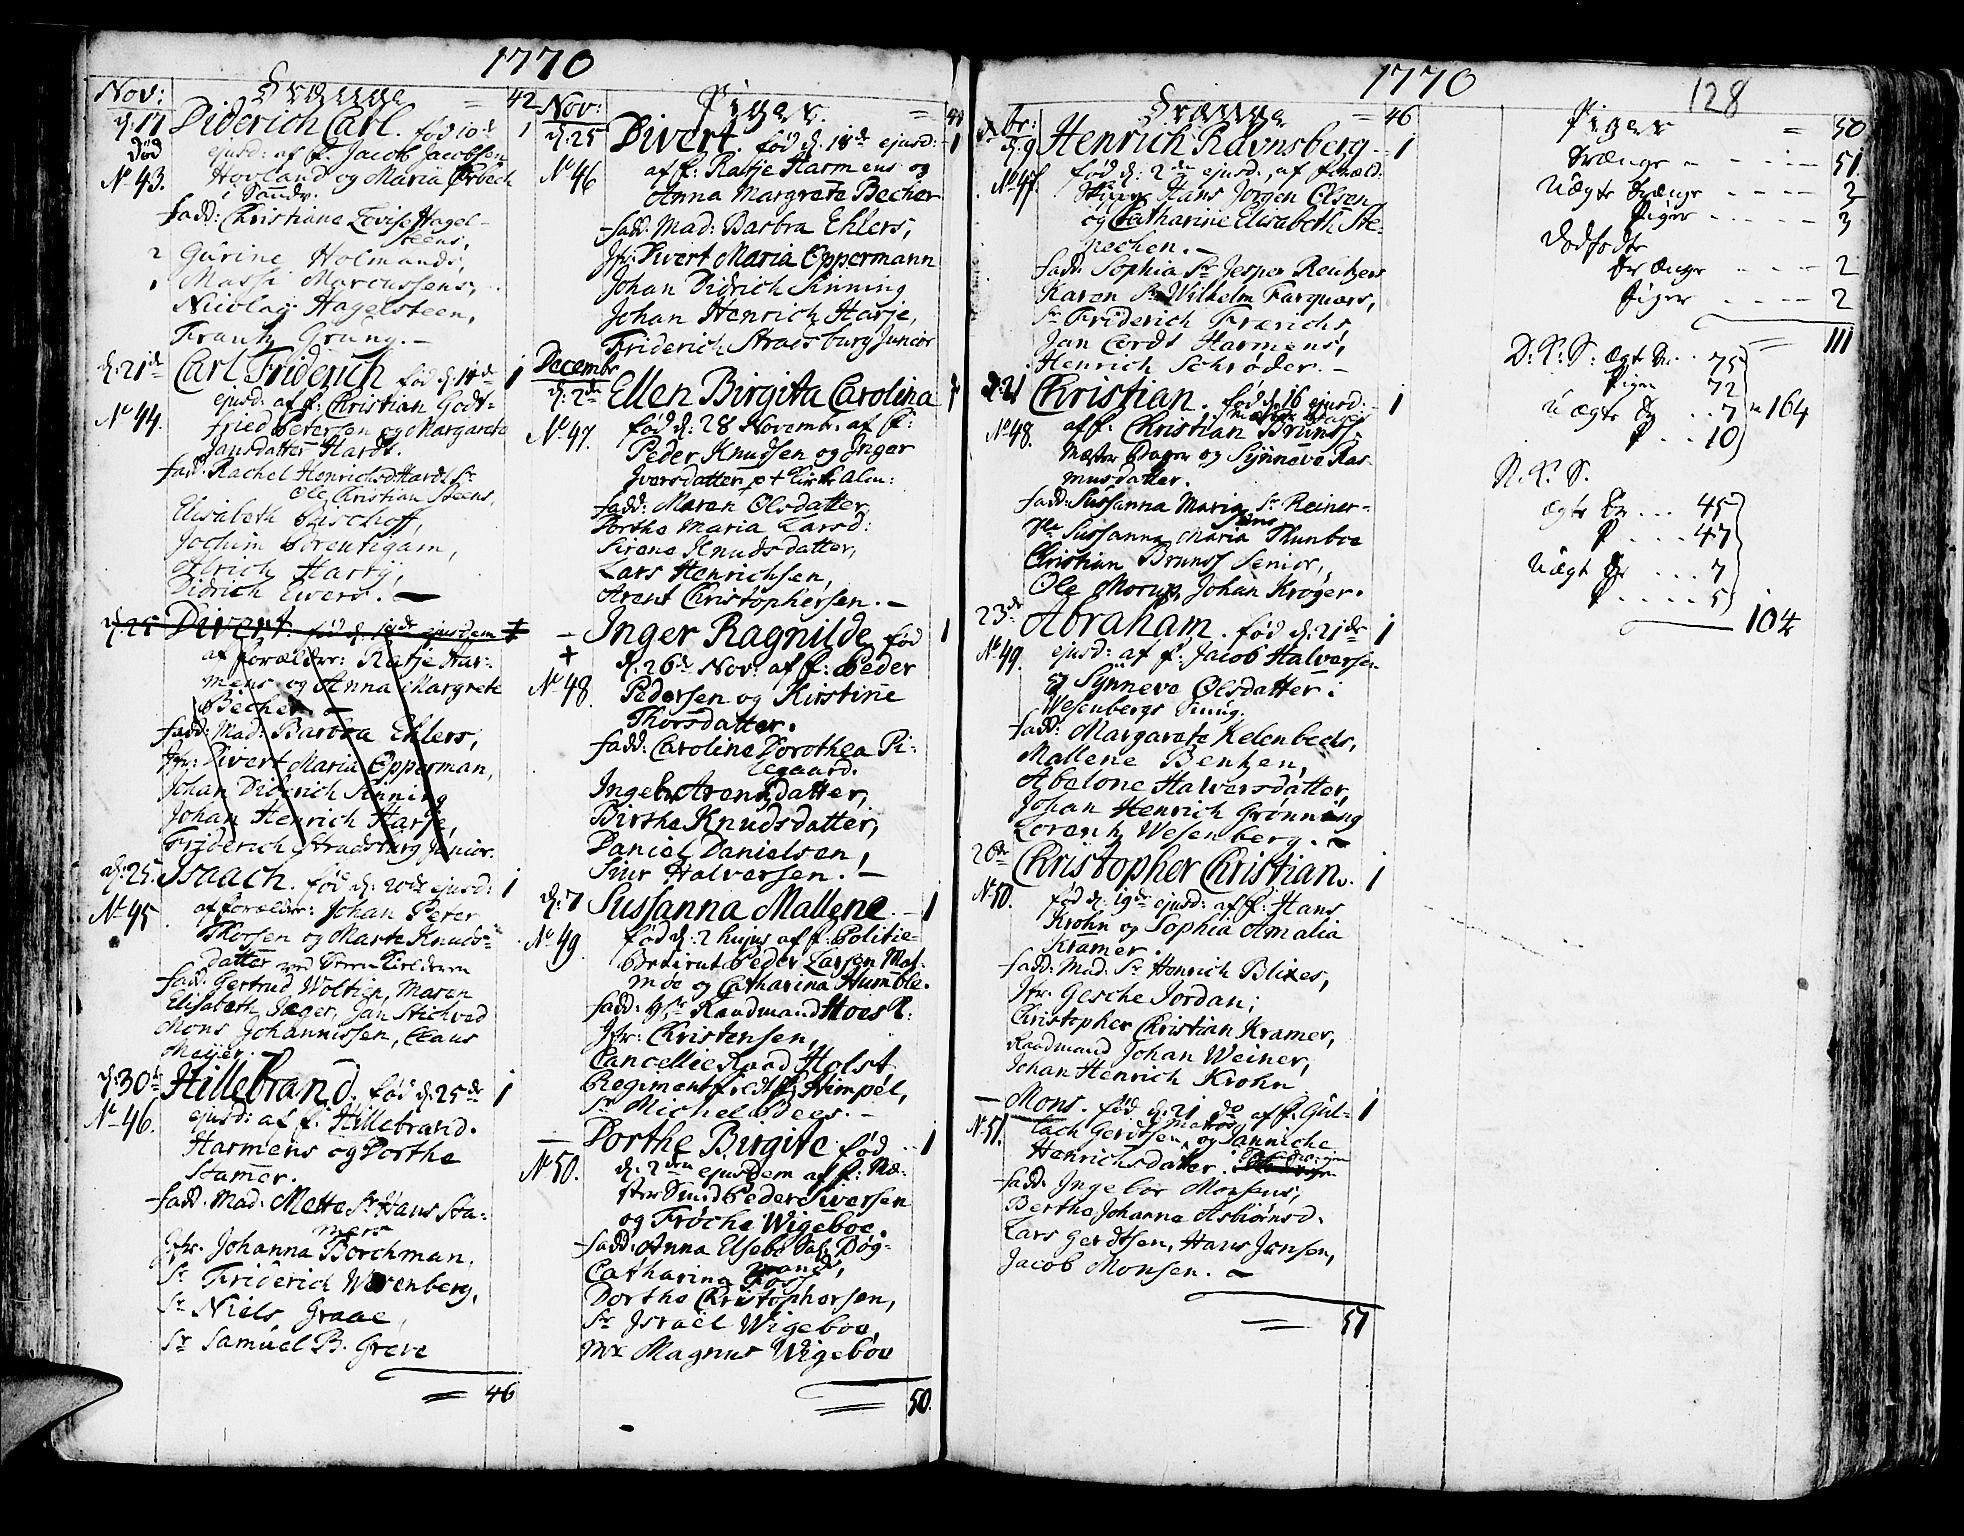 1770
Nov: Drenge = 42
d: 17 Diderich Carl. fød 10de 1
død ejusd: af f. Jacob Jacobsen
No 43. Hovland og Maria Ørbech
i Sandv.
fadd: Christiane Lovise Hagel-
steens,
Gurine Holmands,
Massi Marcussens,
Nicolay Hagelsteen,
Frantz Grung.
d: 21de Carl Friderich fød d: 18de 1
ejusd: af f: Christian Godt-
No 44. fried Petersen og Margarete
Jansdatter Hardt.
fadd: Rachel Henrichsd Hardt Sr
Ole Christian Steens,
Elisabeth Bischoff,
Jochim Brentigam,
Alrich Hartij,
Didrich Evers.
d: 25 Divert. fød d: 18de ejusdem 1
af forældre: Ratje Har-
mens og Anna Margrete
Becher
fadd: Mad: Barbra Ehlers,
Jfr: Divert Maria Opperman,
Johan Diderich Sinning
Johan Henrich Harje,
Friderich Stradsburg Junior.
d: 25. Isaach. fød d: 20de ejusd: 1
No 45 af forældre: Johan Peter
Thorsen og Marte Knuds-
datter ved
fadd: Gertrud Woltien, Maren
Elisabeth Jæger, Jan Stichved
Mons Johannissen, Claus
Meyer.
d: 30te Hillebrand. fød d: 25de 1
No 46. ejusd: af f. Hillebrand.
Harmens og Dorthe
Stamer.
fadd. Mad: Mette Sr Hans Sta-
mers
Jfr. Johanna Borchman,
Sr Friderich Warenberg,
Sr Niels Graae,
Sr Samuel B. Greve
= 46
Nov: Piger. =
d: 25 Divert. fød d. 18de ejusd: 1
No 46 af f: Ratje Harmens og
Anna Margrete Becher
fadd: Mad: Barbra Ehlers,
Jfr: Divert Maria Oppermann
Johan Didrich Sinning
Johan Henrich Harje,
Friderich Stradsburg Junior
Decembr
d: 2de Ellen Birgitta Carolina 1
No 47. fød d: 28 Novembr. af f:
Peder Knudsen og Inger
Iversdatter
fadd: Maren Olsdatter
Dorthe Maria Larsd:
Sirene Knudsdatter,
Lars Henrichsen,
Arent Christophersen.
Inger Ragnilde fød 1
d. 26de Nov: af f: Peder
No 48. Pedersen og Kirstine
Thorsdatter.
fadd: Caroline Dorothea Pi-
legaard.
Ingeb: Arentzdatter,
Birthe Knudsdatter,
Daniel Danielsen,
Siur Halversen.
d: 7 Sussanna Mallene. 1
No 49 fød d: 2 hujus af f: Politie-
Betient Peder Larsen Mal-
møe og Catharina Humble.
fadd: Raadmand Hoes K:
Jfr: Christensen,
Cancellie Raad Holst
Regiments Himpel,
Sr Michel Bees.
Dorthe Birgite fød 1
No 50. d. 2den ejusdem af f: Mæ-
ster Smid Peder Siversen
og Frøche Wigeboe.
fadd: Anna Elsebe Sal. Bøg-
mands,
Catharina Foss
Dorthe Christophersen,
Sr Israel Wigeboe,
Mr Magnus Wigeboe
50.
1770
br: Drenge = 46
d: 9 Henrich Ravnsberg 1
No 47. fød d: 2den ejusd., af foræld.
Hans Jørgen Olsen
og Catharine Elisabeth Ste-
pechen.
fadd: Sophia Sr Jesper Reutzers
Karen Sr Wilhelm Farquars,
Sr Friderich Frærichs,
Jan Cordt Harmens,
Henrich Schrøder.
d: 21 Christian. fød d: 16 ejusd. 1
No 48. af f. Christian Brunss.
Mæster Bager og Synneve Ras-
musdatter.
fadd: Sussanna Maria Sr Reiner-
Sens
Sussanna Maria Thunboe
Christian Brunss Senior,
Ole Morup, Johan Krøger.
23de Abraham. fød d: 21de 1
No 49. ejusd: af f: Jacob Halversen
og Synneve Olsdatter i
Wesenbergs Smug.
fadd: Margarete Kelenbeds,
Mallene Bentzen,
Abelone Halversdatter,
Johan Henrich Grønning
Lorentz Wesenberg.
26de Christopher Christian. 1
No 50. fød d: 19de ejusd: af f: Hans
Krohn og Sophia Amalia
Kramer.
fadd: Mad. Sr Henrich Blixes,
Jfr. Gesche Jordan;
Christopher Christian Kramer,
Raadmand Johan Weiner,
Johan Henrich Krohn
Mons. fød d: 21 do af f. Gul- 1
No 51. lach Gerdtsen, Matros og Janniche
Henrichsdatter.
fadd: Ingebor Monsens,
Berthe Johanna Asbiørnsd.
Lars Gerdtsen, Hans Jansen,
Jacob Monsen.
51
128
Piger = 50
Drænge 51
Uægte Drænge 2
Piger 3
Dødfødte
Drænge 2
Piger 2
111
D: K: S: ægte Dr. 75
Piger 72
uægte Dr 7 164
P 10
N. K. S.
ægte Dr 45
P 47
Uægt Dr 7
P 5
104